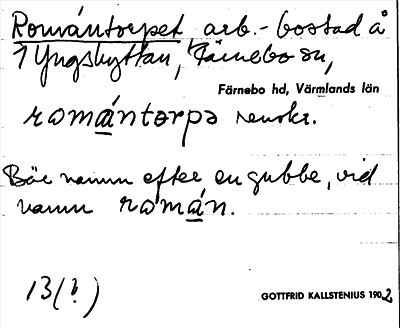 Romántorpet, arb.-bostad å
1 Yngshyttan, Färnebo sn,
Färnebo hd, Värmlands län
romántorpə renskr.
Bär namn efter en gubbe, vid
namn román.
13(?)
GOTTFRID KALLSTENIUS 1902